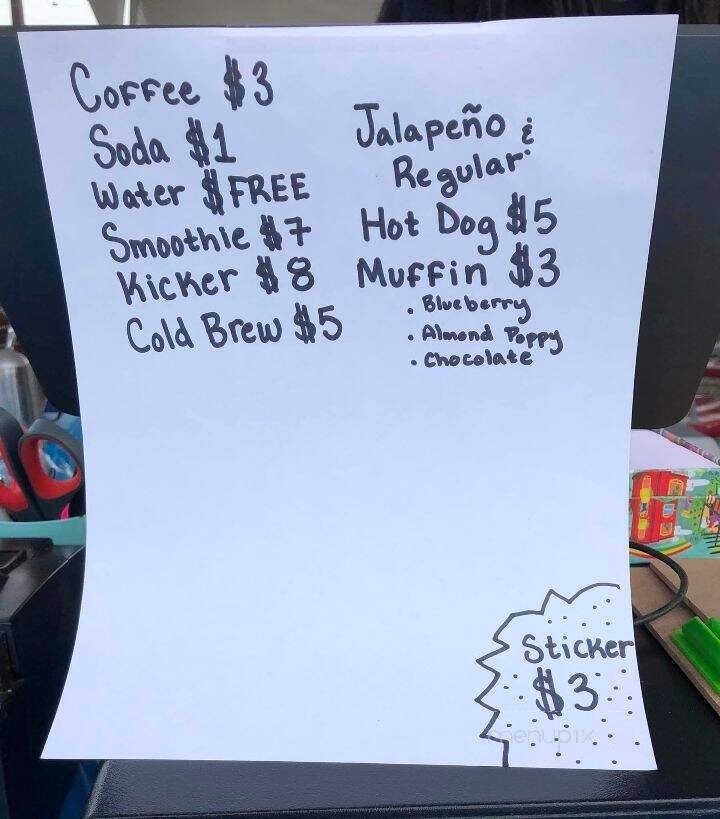 Coffee $3
Soda $1
Water $FREE
Smoothie $7
Kicker $8
Cold Brew $5
Jalapeño &
Regular
Hot Dog $5
Muffin $3
• Blueberry
• Almond Poppy
• Chocolate
Sticker
$3
menupix